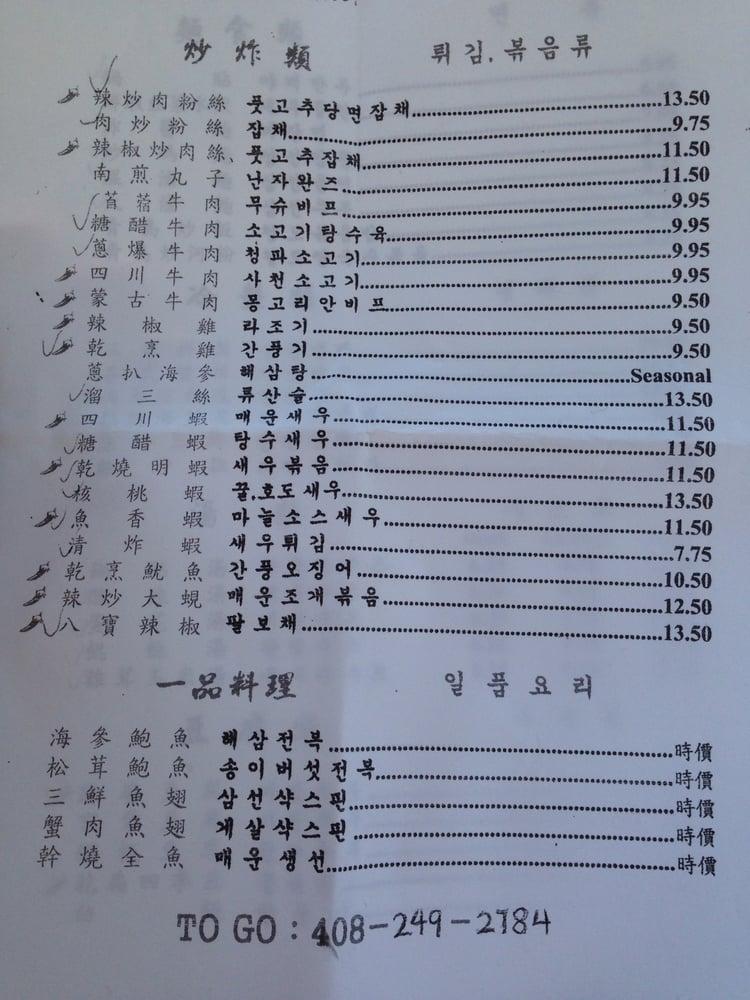 炒炸類 튀김,볶음류
辣炒肉粉絲 풋고추당면잡채 13.50
肉炒粉絲 잡채 9.75
辣椒炒肉絲 풋고추잡채 11.50
南煎丸子 난자완즈 11.50
苜蓿牛肉 무슈비프 9.95
糖醋牛肉 소고기탕수육 9.95
蔥爆牛肉 청파소고기 9.95
四川牛肉 사천소고기 9.95
蒙古牛肉 몽고리안비프 9.50
辣椒雞 라조기 9.50
乾烹雞 간풍기 9.50
蔥扒海參 해삼탕 Seasonal
溜三絲 류산슬 13.50
四川蝦 매운새우 11.50
糖醋蝦 탕수새우 11.50
乾燒明蝦 새우볶음 11.50
核桃蝦 꿀,호도새우 13.50
魚香蝦 마늘소스새우 11.50
清炸蝦 새우튀김 7.75
乾烹魷魚 간풍오징어 10.50
辣炒大蜆 매운조개볶음 12.50
八寶辣椒 팔보채 13.50
一品料理 일품요리
海參鮑魚 해삼전복 時價
松茸鮑魚 송이버섯전복 時價
三鮮魚翅 삼선샥스핀 時價
蟹肉魚翅 게살샥스핀 時價
幹燒全魚 매운생선 時價
TO GO : 408-249-2784